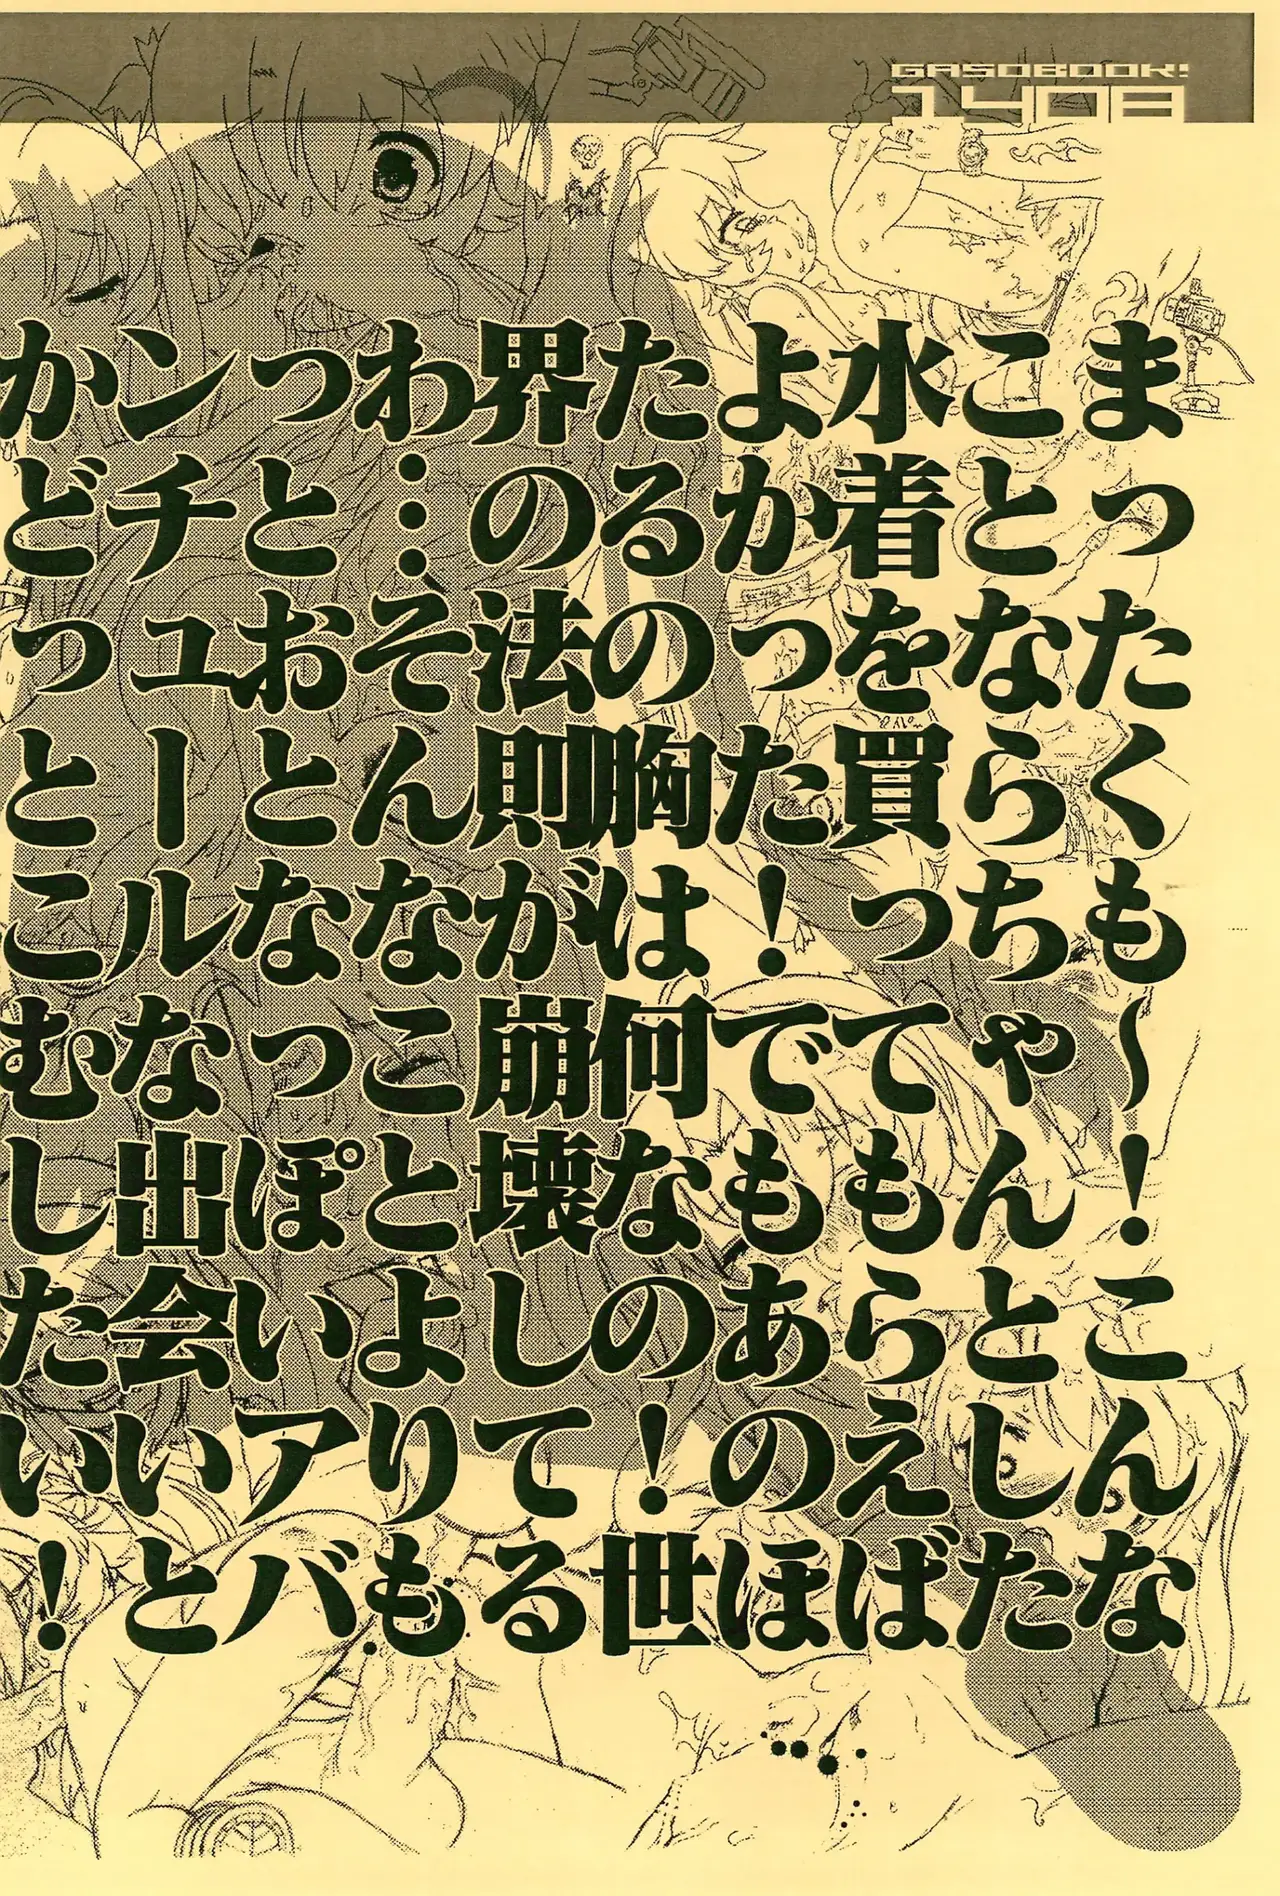 GASOBOOK!
1408
まったくも～!こんな
ことならちゃんとした
水着を買ってもらえば
よかった!でもあのほ
たるの胸は何なの!世
界の法則が崩壊してる
わ…そんなことよりも
っとおとなっぽいアバ
ンチュールな出会いと
かどっとこむしたい!